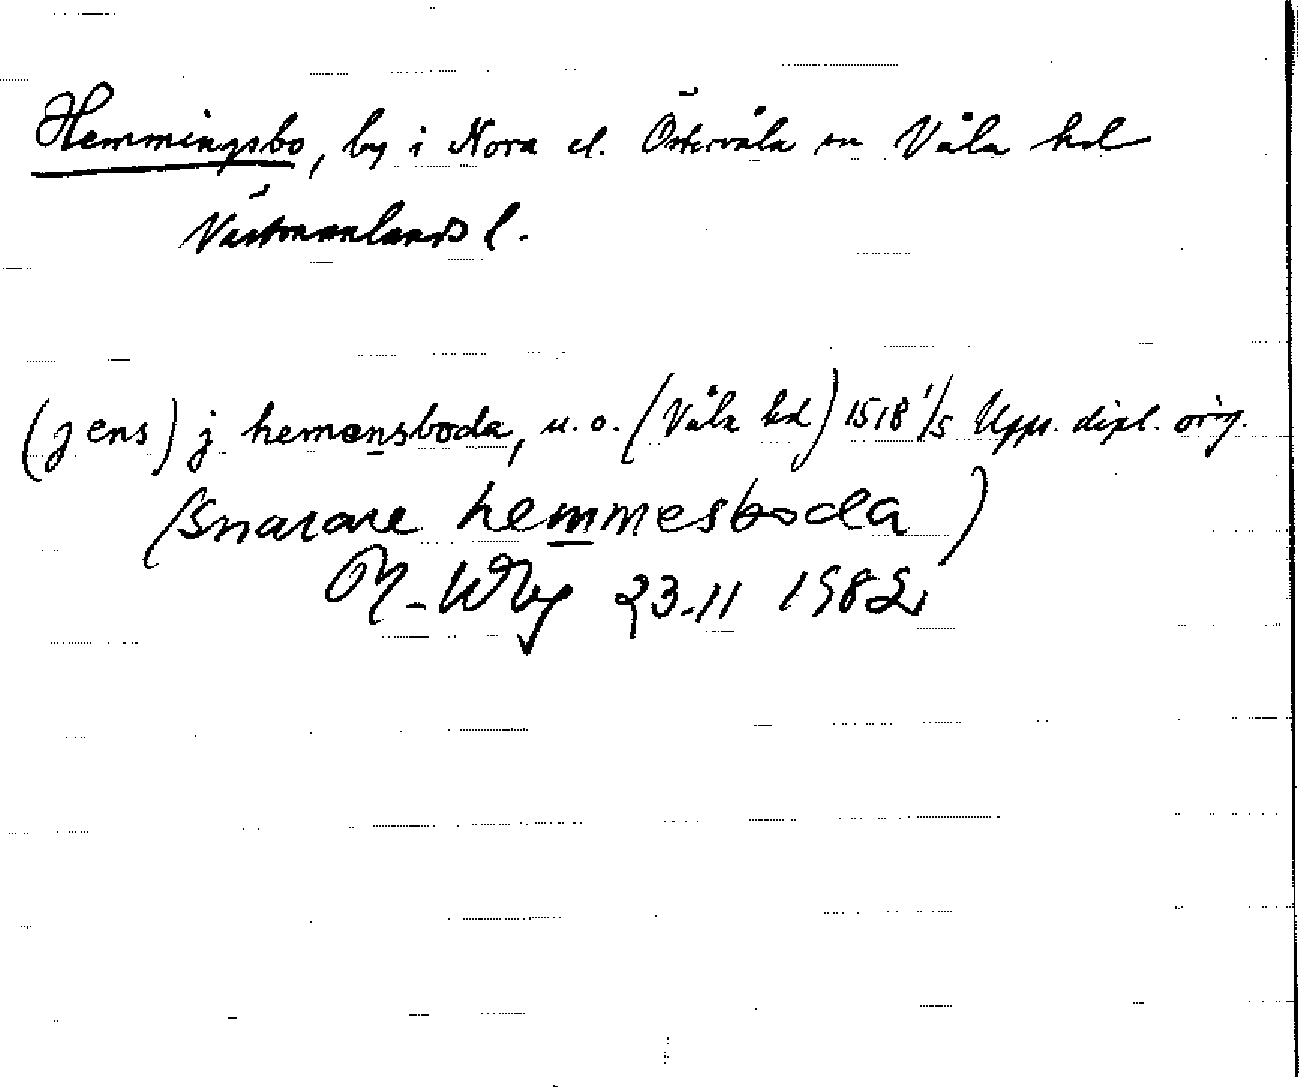 Hemmingsbo, by i Nora el. Östervåla sn Våla hd
Västmanlands l.
(jens) j hemensboda, u. o. (Våla hd) 1518 1/5 Upps. dipl. orig.
(snarare hemmesboda)
23.11 1982